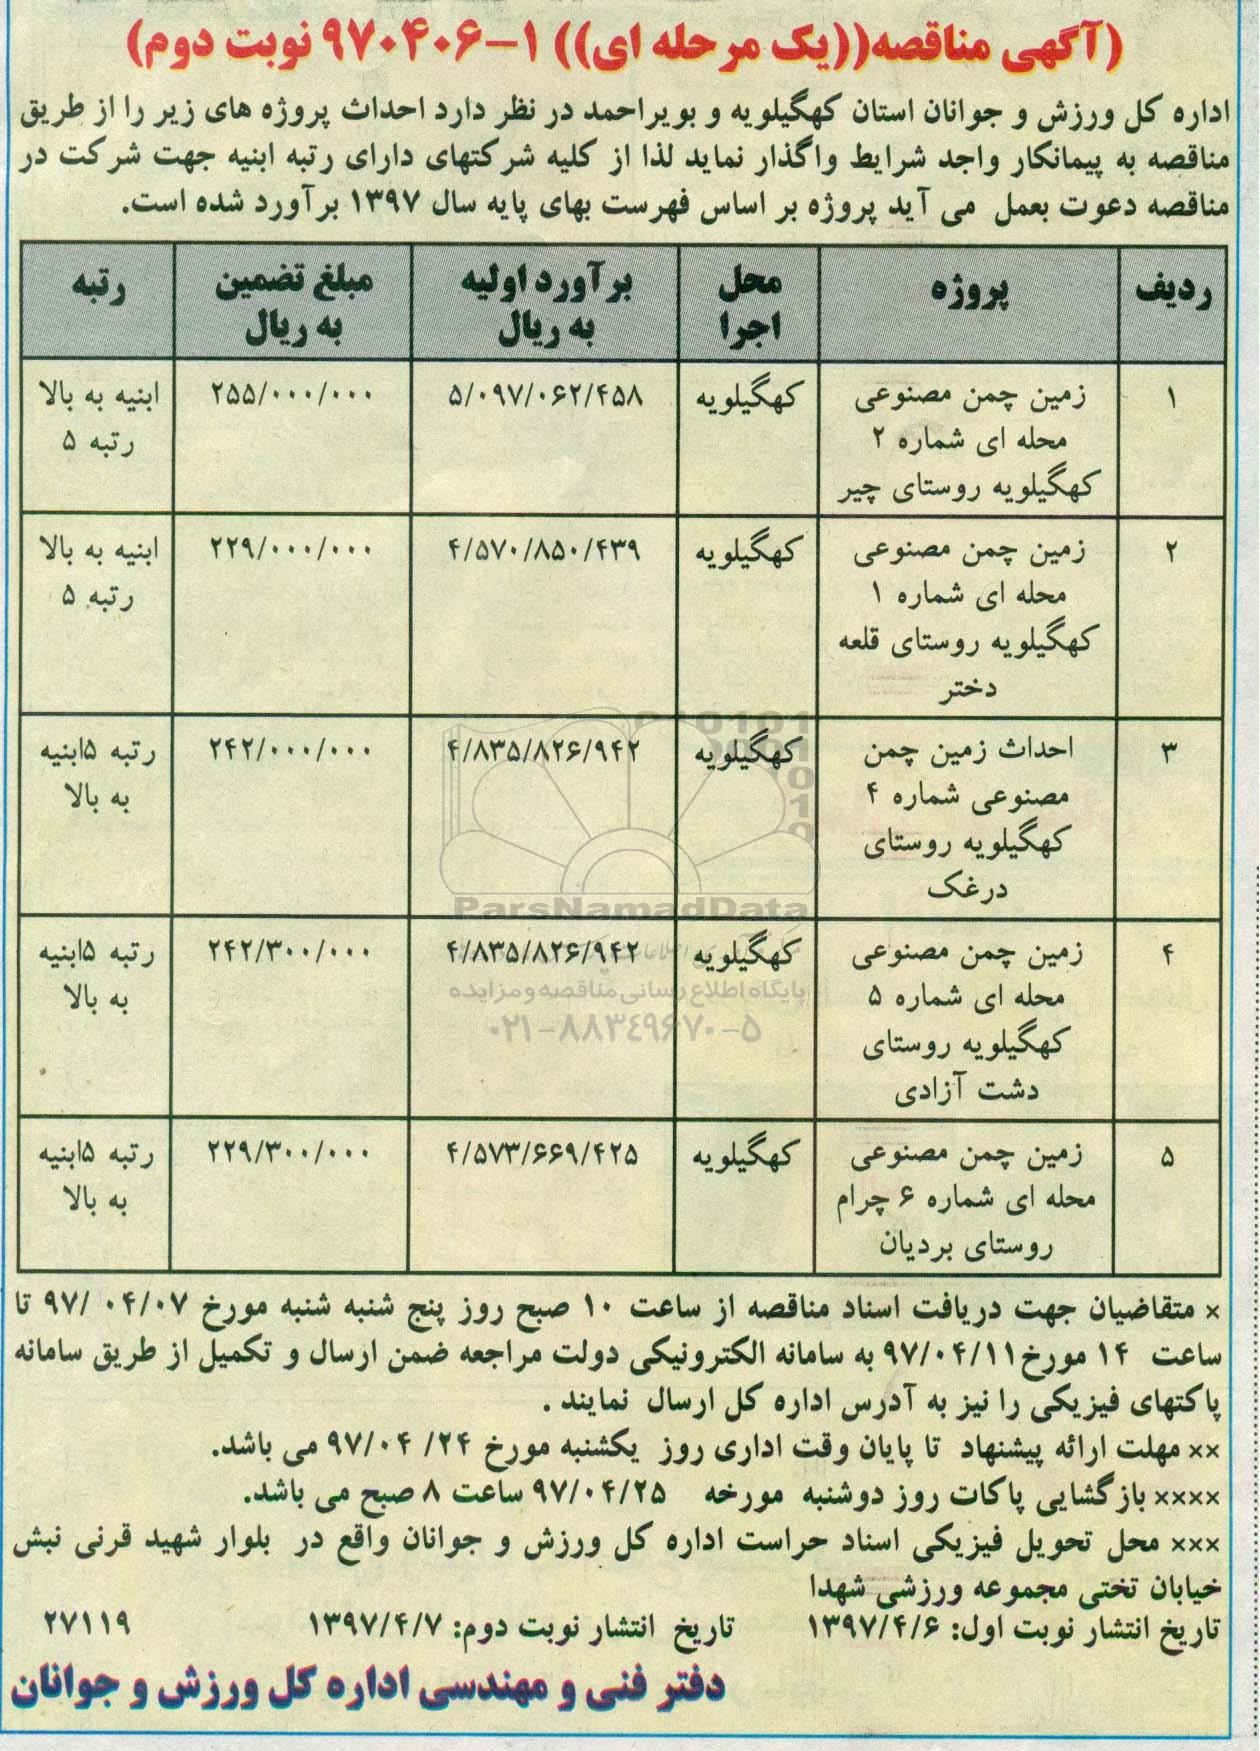 (آگهی مناقصه((یک مرحله ای)) ۱-۹۷۰۴۰۶ نوبت دوم)
اداره کل ورزش و جوانان استان کهگیلویه و بویراحمد در نظر دارد احداث پروژه های زیر را از طریق
مناقصه به پیمانکار واجد شرایط واگذار نماید لذا از کلیه شرکتهای دارای رتبه ابنیه جهت شرکت در
مناقصه دعوت بعمل می آید پروژه بر اساس فهرست بهای پایه سال ۱۳۹۷ برآورد شده است.
ردیف پروژه محل اجرا برآورد اولیه به ریال مبلغ تضمین به ریال رتبه
۱ زمین چمن مصنوعی کهگیلویه ۵/۰۹۷/۰۶۲/۴۵۸ ۲۵۵/۰۰۰/۰۰۰ ابنیه به بالا
محله ای شماره ۲ رتبه ۵
کهگیلویه روستای چیر
۲ زمین چمن مصنوعی کهگیلویه ۴/۵۷۰/۸۵۰/۴۳۹ ۲۲۹/۰۰۰/۰۰۰ ابنیه به بالا
محله ای شماره ۱ رتبه ۵
کهگیلویه روستای قلعه
دختر
۳ احداث زمین چمن کهگیلویه ۴/۸۳۵/۸۲۶/۹۴۲ ۲۴۲/۰۰۰/۰۰۰ رتبه ۵ابنیه
مصنوعی شماره ۴ به بالا
کهگیلویه روستای
درغک
۴ زمین چمن مصنوعی کهگیلویه ۴/۸۳۵/۸۲۶/۹۴۲ ۲۴۲/۳۰۰/۰۰۰ رتبه ۵ابنیه
محله ای شماره ۵ به بالا
کهگیلویه روستای
دشت آزادی
۵ زمین چمن مصنوعی کهگیلویه ۴/۵۷۳/۶۶۹/۴۲۵ ۲۲۹/۳۰۰/۰۰۰ رتبه ۵ابنیه
محله ای شماره ۶ چرام به بالا
روستای بردیان
ParsNamadData
پایگاه اطلاع رسانی مناقصه و مزایده
۰۲۱-۸۸۳۴۹۶۷۰-۵
× متقاضیان جهت دریافت اسناد مناقصه از ساعت ۱۰ صبح روز پنج شنبه شنبه مورخ ۰۴/۰۷ /۹۷ تا
ساعت ۱۴ مورخ۹۷/۰۴/۱۱ به سامانه الکترونیکی دولت مراجعه ضمن ارسال و تکمیل از طریق سامانه
پاکتهای فیزیکی را نیز به آدرس اداره کل ارسال نمایند .
×× مهلت ارائه پیشنهاد تا پایان وقت اداری روز یکشنبه مورخ ۲۴/ ۹۷/۰۴ می باشد.
×××× بازگشایی پاکات روز دوشنبه مورخه ۹۷/۰۴/۲۵ ساعت ۸ صبح می باشد.
××× محل تحویل فیزیکی اسناد حراست اداره کل ورزش و جوانان واقع در بلوار شهید قرنی نبش
خیابان تختی مجموعه ورزشی شهدا
تاریخ انتشار نوبت اول: ۱۳۹۷/۴/۶ تاریخ انتشار نوبت دوم: ۱۳۹۷/۴/۷ ۲۷۱۱۹
دفتر فنی و مهندسی اداره کل ورزش و جوانان